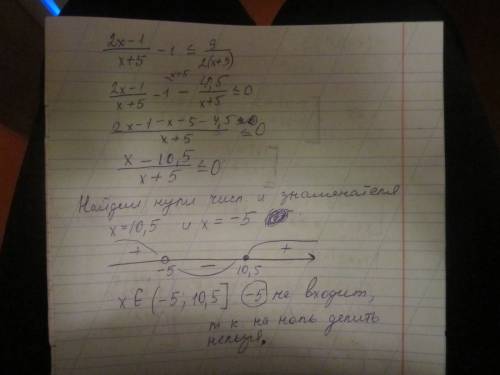 (2x-1)/(x+5) - 1 ≤ 9/(2(x+5))
(2x-1)/(x+5) - 1 - 4,5/(x+5) ≤ 0
(2x-1-x-5-4,5)/(x+5) ≤ 0
(x-10,5)/(x+5) ≤ 0
Найдем нули числ и знаменателя
x=10,5 и x=-5
+ -5 - 10,5 +
x ∈ (-5; 10,5] -5 не входит,
т к на ноль делить
нельзя.